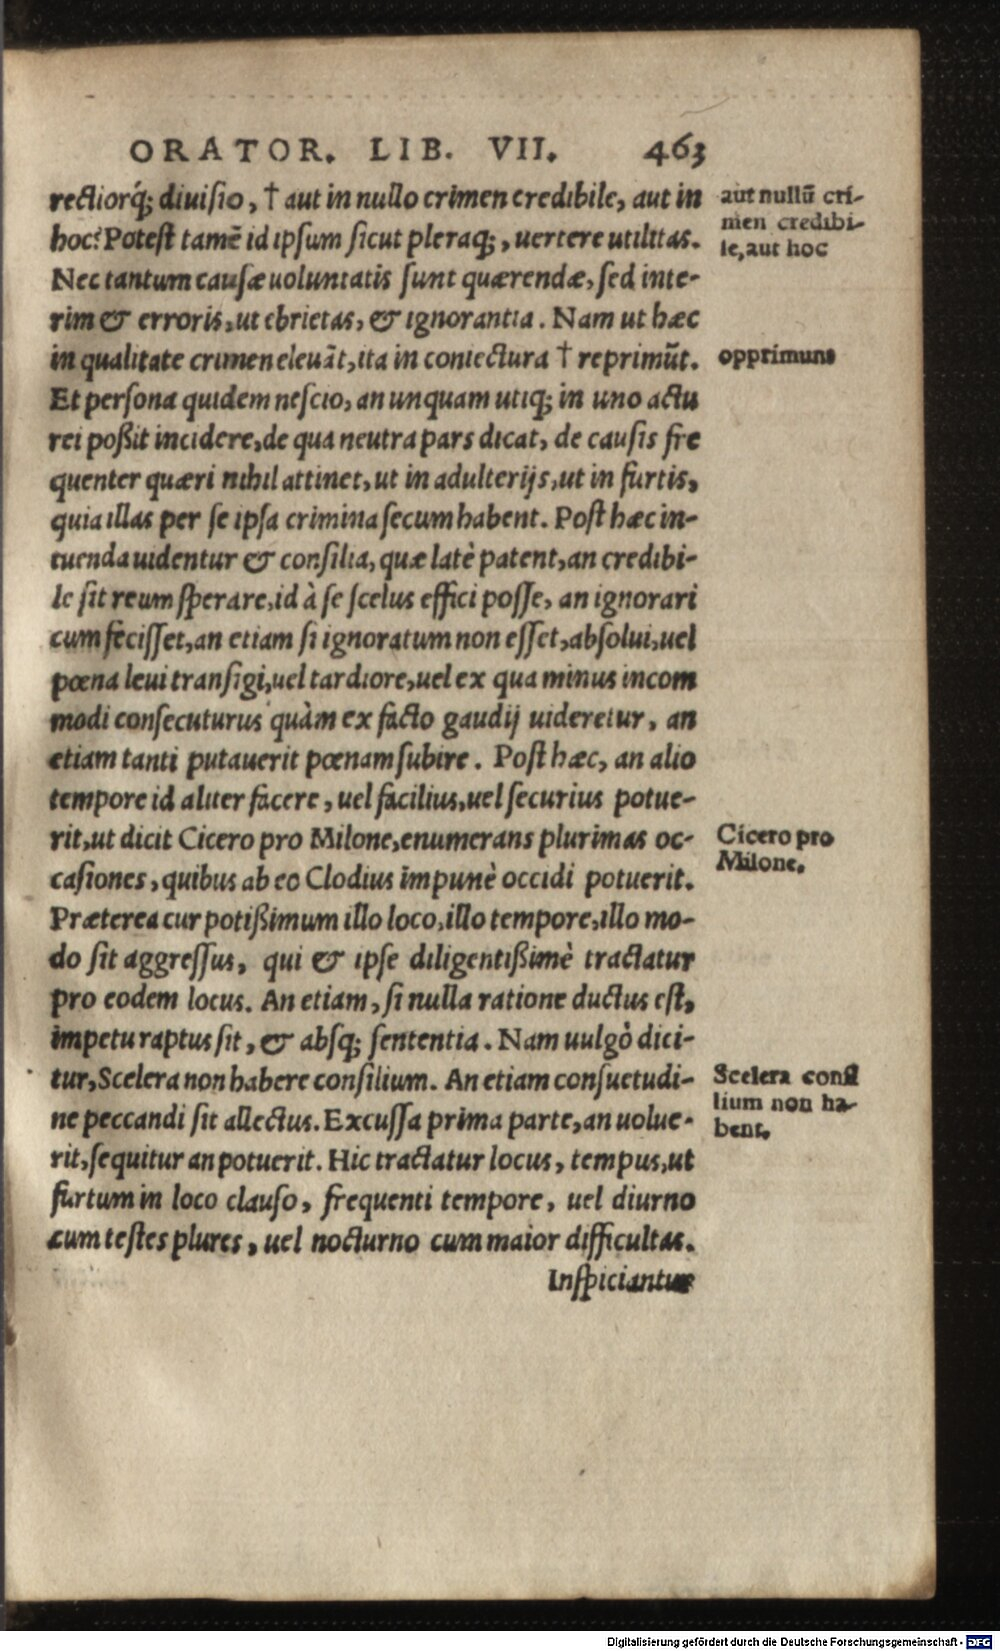 ORATOR. LIB. VII. 463
rectiorq́; diuisio, † aut in nullo crimen credibile, aut in
hoc? Potest tamē id ipsum sicut pleraq;, uertere utilitas.
Nec tantum causæ uoluntatis sunt quærendæ, sed inte-
rim & erroris, ut ebrietas, & ignorantia. Nam ut hæc
in qualitate crimen eleuāt, ita in coniectura † reprimūt.
Et persona quidem nescio, an unquam utiq; in uno actu
rei poßit incidere, de qua neutra pars dicat, de causis fre
quenter quæri nihil attinet, ut in adulterijs, ut in furtis,
quia illas per se ipsa crimina secum habent. Post hæc in-
tuenda uidentur & consilia, quæ latè patent, an credibi-
le sit reum sperare, id à se scelus effici posse, an ignorari
cum fecisset, an etiam si ignoratum non esset, absolui, uel
pœna leui transigi, uel tardiore, uel ex qua minus incom
modi consecuturus quàm ex facto gaudij uideretur, an
etiam tanti putauerit pœnam subire. Post hæc, an alio
tempore id aliter facere, uel facilius, uel securius potue-
rit, ut dicit Cicero pro Milone, enumerans plurimas oc-
casiones, quibus ab eo Clodius impunè occidi potuerit.
Præterea cur potißimum illo loco, illo tempore, illo mo-
do sit aggressus, qui & ipse diligentißimè tractatur
pro eodem locus. An etiam, si nulla ratione ductus est,
impetu raptus sit, & absq; sententia. Nam uulgò dici-
tur, Scelera non habere consilium. An etiam consuetudi-
ne peccandi sit allectus. Excussa prima parte, an uolue-
rit, sequitur an potuerit. Hic tractatur locus, tempus, ut
furtum in loco clauso, frequenti tempore, uel diurno
cum testes plures, uel nocturno cum maior difficultas.
Inspiciantur
aut nullū cri-
men credibi-
le, aut hoc
opprimunt
Cicero pro
Milone.
Scelera consi
lium non ha-
bent.
Digitalisierung gefördert durch die Deutsche Forschungsgemeinschaft - DFG